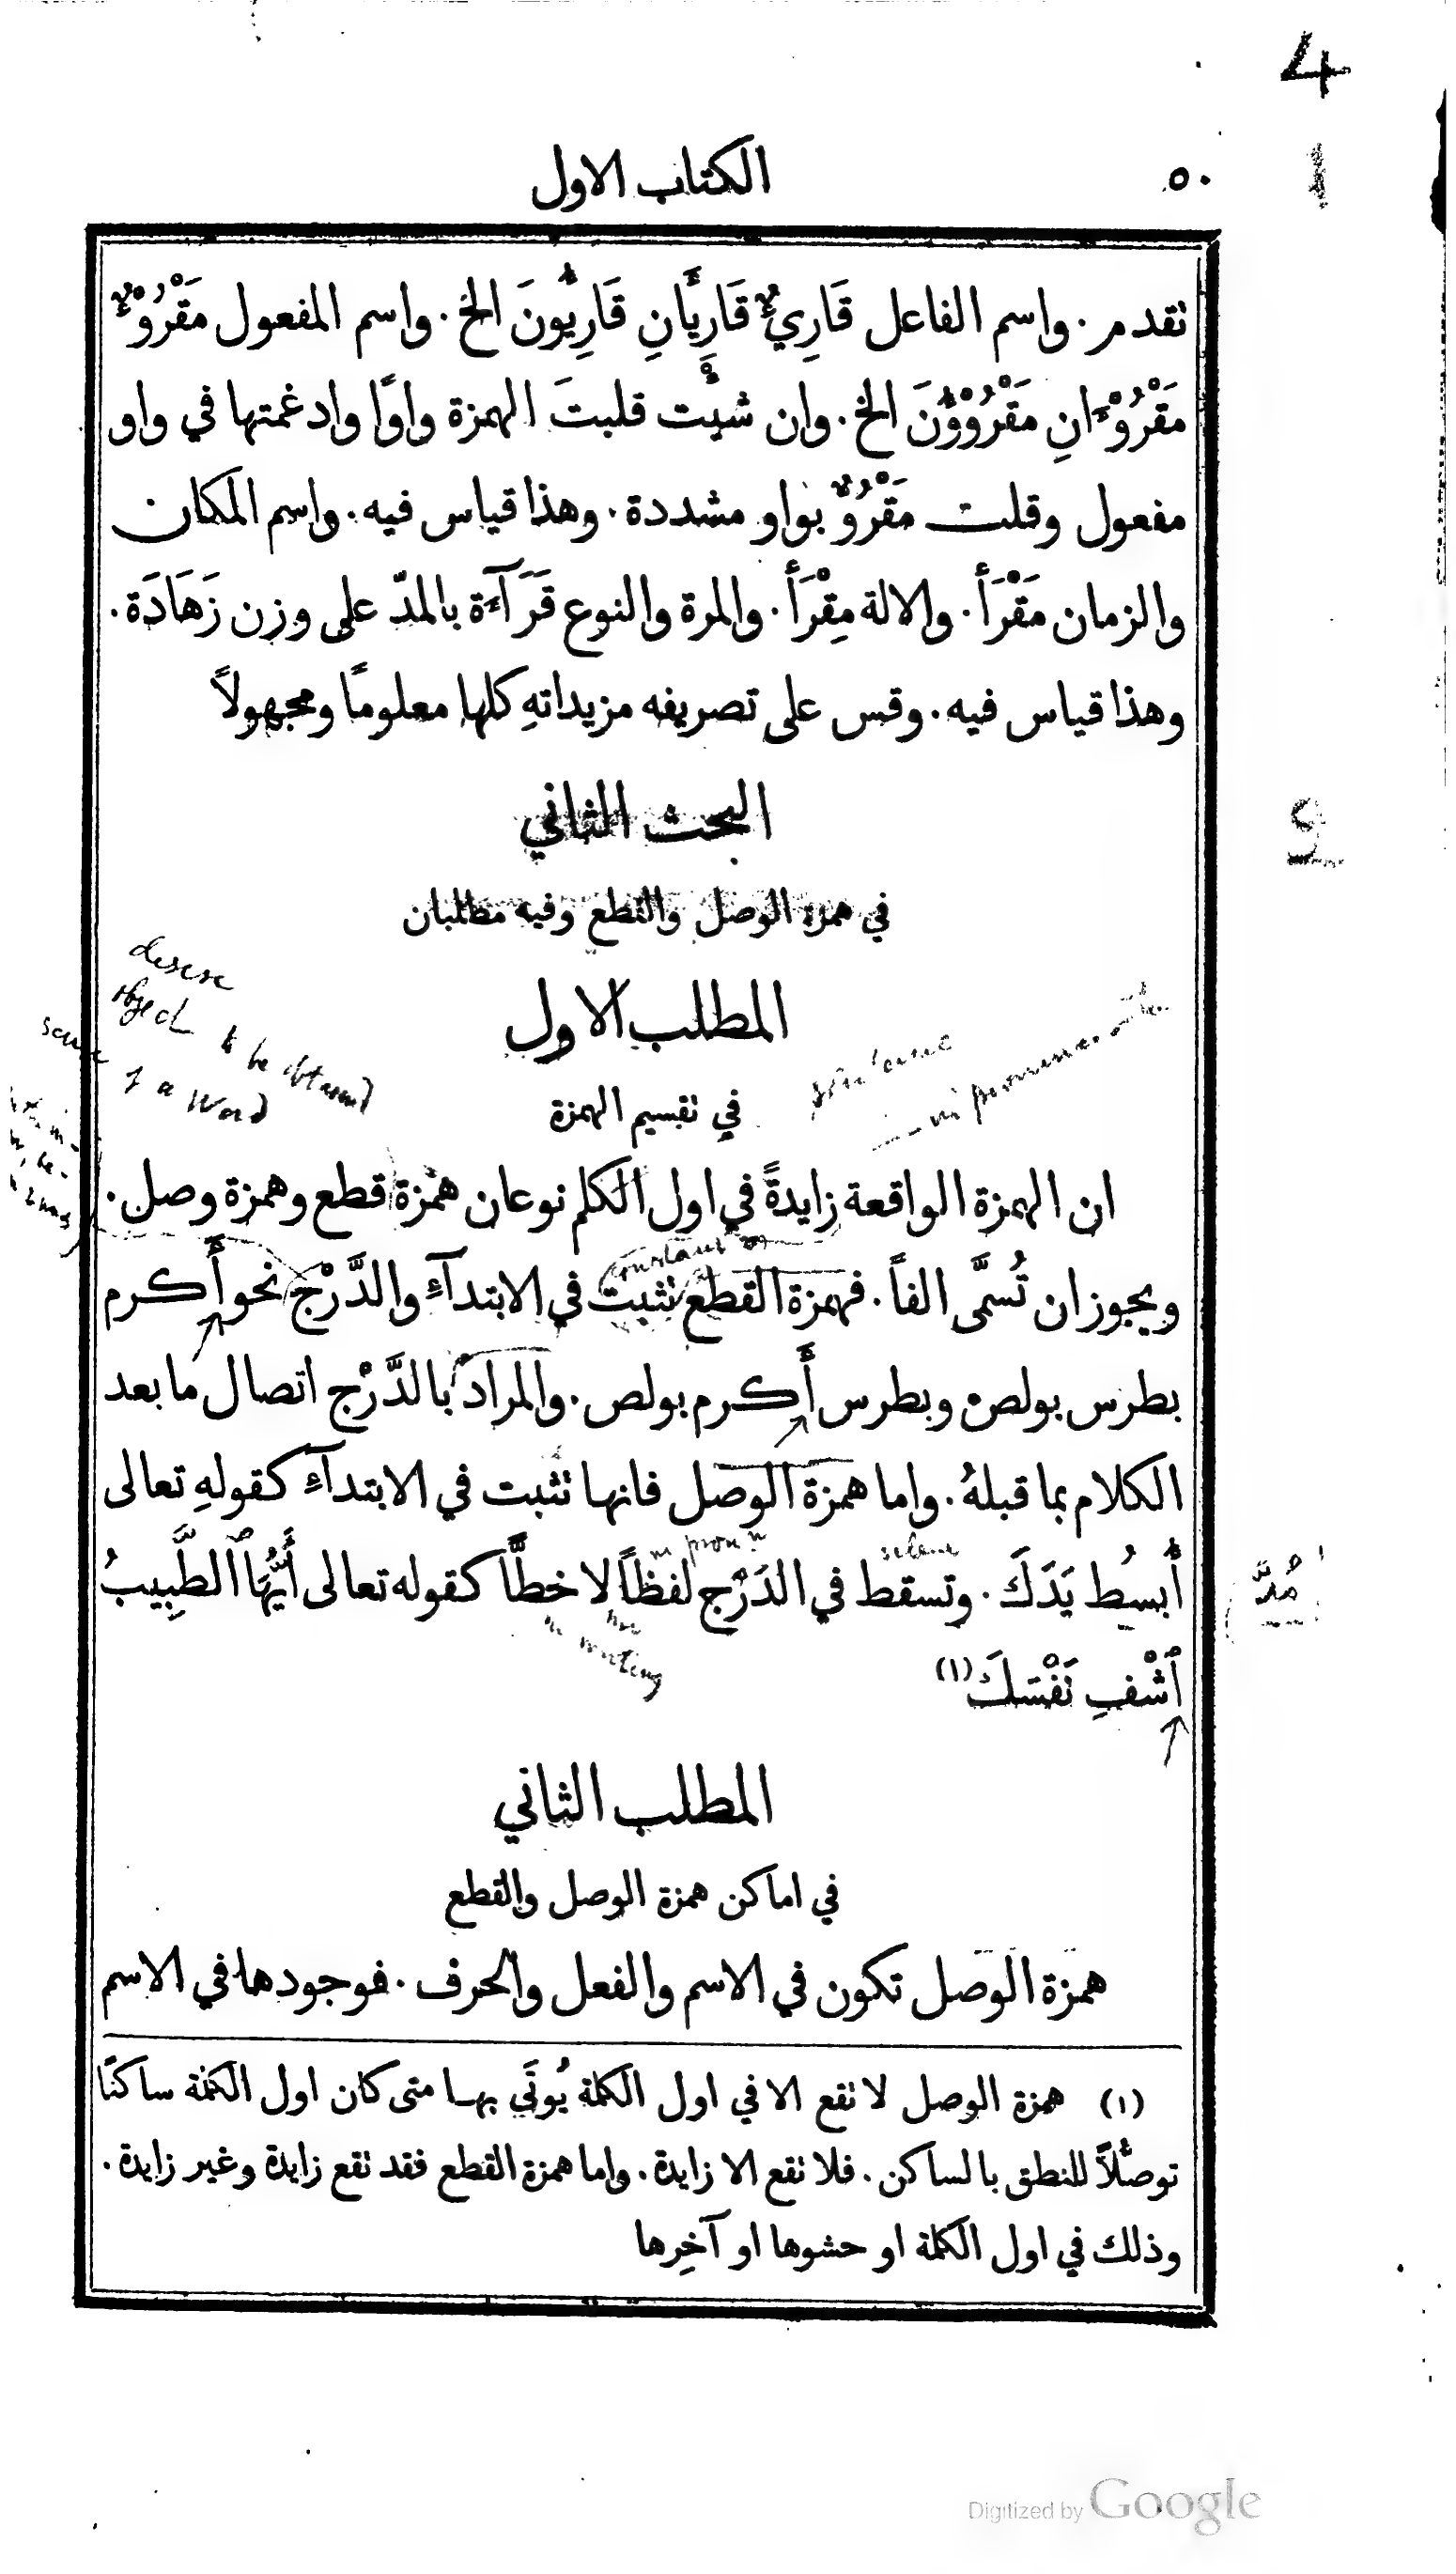 4
1
٥٠
الكتاب الاول
نقدم. واسم الفاعل قَارِيٌ قَارِئَانِ قَارِئُونَ الخ. واسم المفعول مَقْرُوْءٌ
مَقْرُوْءَانِ مَقْرُوْؤُنَ الخ. وان شئت قلبتَ الهمزة واوًا وادغمتها في واو
مفعول وقلت مَقْرُوٌّ بواو مشددة. وهذا قياس فيه. واسم المكان
والزمان مَقْرَأ. والالة مِقْرَأ. والمرة والنوع قَرَآءَة بالمدّ على وزن زَهَادَة.
وهذا قياس فيه. وقس على تصريفه مزيداتهِ كلها معلومًا ومجهولاً
البحث الثاني
في همزة الوصل والقطع وفيه مطلبان
desire
object to be obtained
sense of a word
المطلب الاول
in pronunciation
في نقسيم الهمزة
ان الهمزة الواقعة زايدةً في اول الكلم نوعان همزة قطع وهمزة وصل.
constant
ويجوز ان تُسمَّى الفاً. فهمزة القطع نثبت في الابتدآءِ والدَّرْج نحو أَكرم
بطرس بولص وبطرس أَكرم بولص. والمراد بالدَّرْج اتصال ما بعد
الكلام بما قبلهُ. واما همزة الوصل فانها نثبت في الابتدآءِ كقولهِ تعالى
in pron
silent
أُبسُط يَدَكَ. وتسقط في الدَرْج لفظاً لا خطًّا كقوله تعالى أَيُّهَا ٱلطَّبِيبُ
مُدَّ
not
in writing
ٱشْفِ نَفْسَكَ (١)
المطلب الثاني
في اماكن همزة الوصل والقطع
همزة الوصل تكون في الاسم والفعل والحرف. فوجودها في الاسم
(١) همزة الوصل لا نقع الا في اول الكلمة يُوتَى بها متى كان اول الكلمة ساكنًا
توصُّلاً للنطق بالساكن. فلا نقع الا زايدة. واما همزة القطع فقد نقع زايدة وغير زايدة.
وذلك في اول الكلمة او حشوها او آخِرها
Digitized by Google